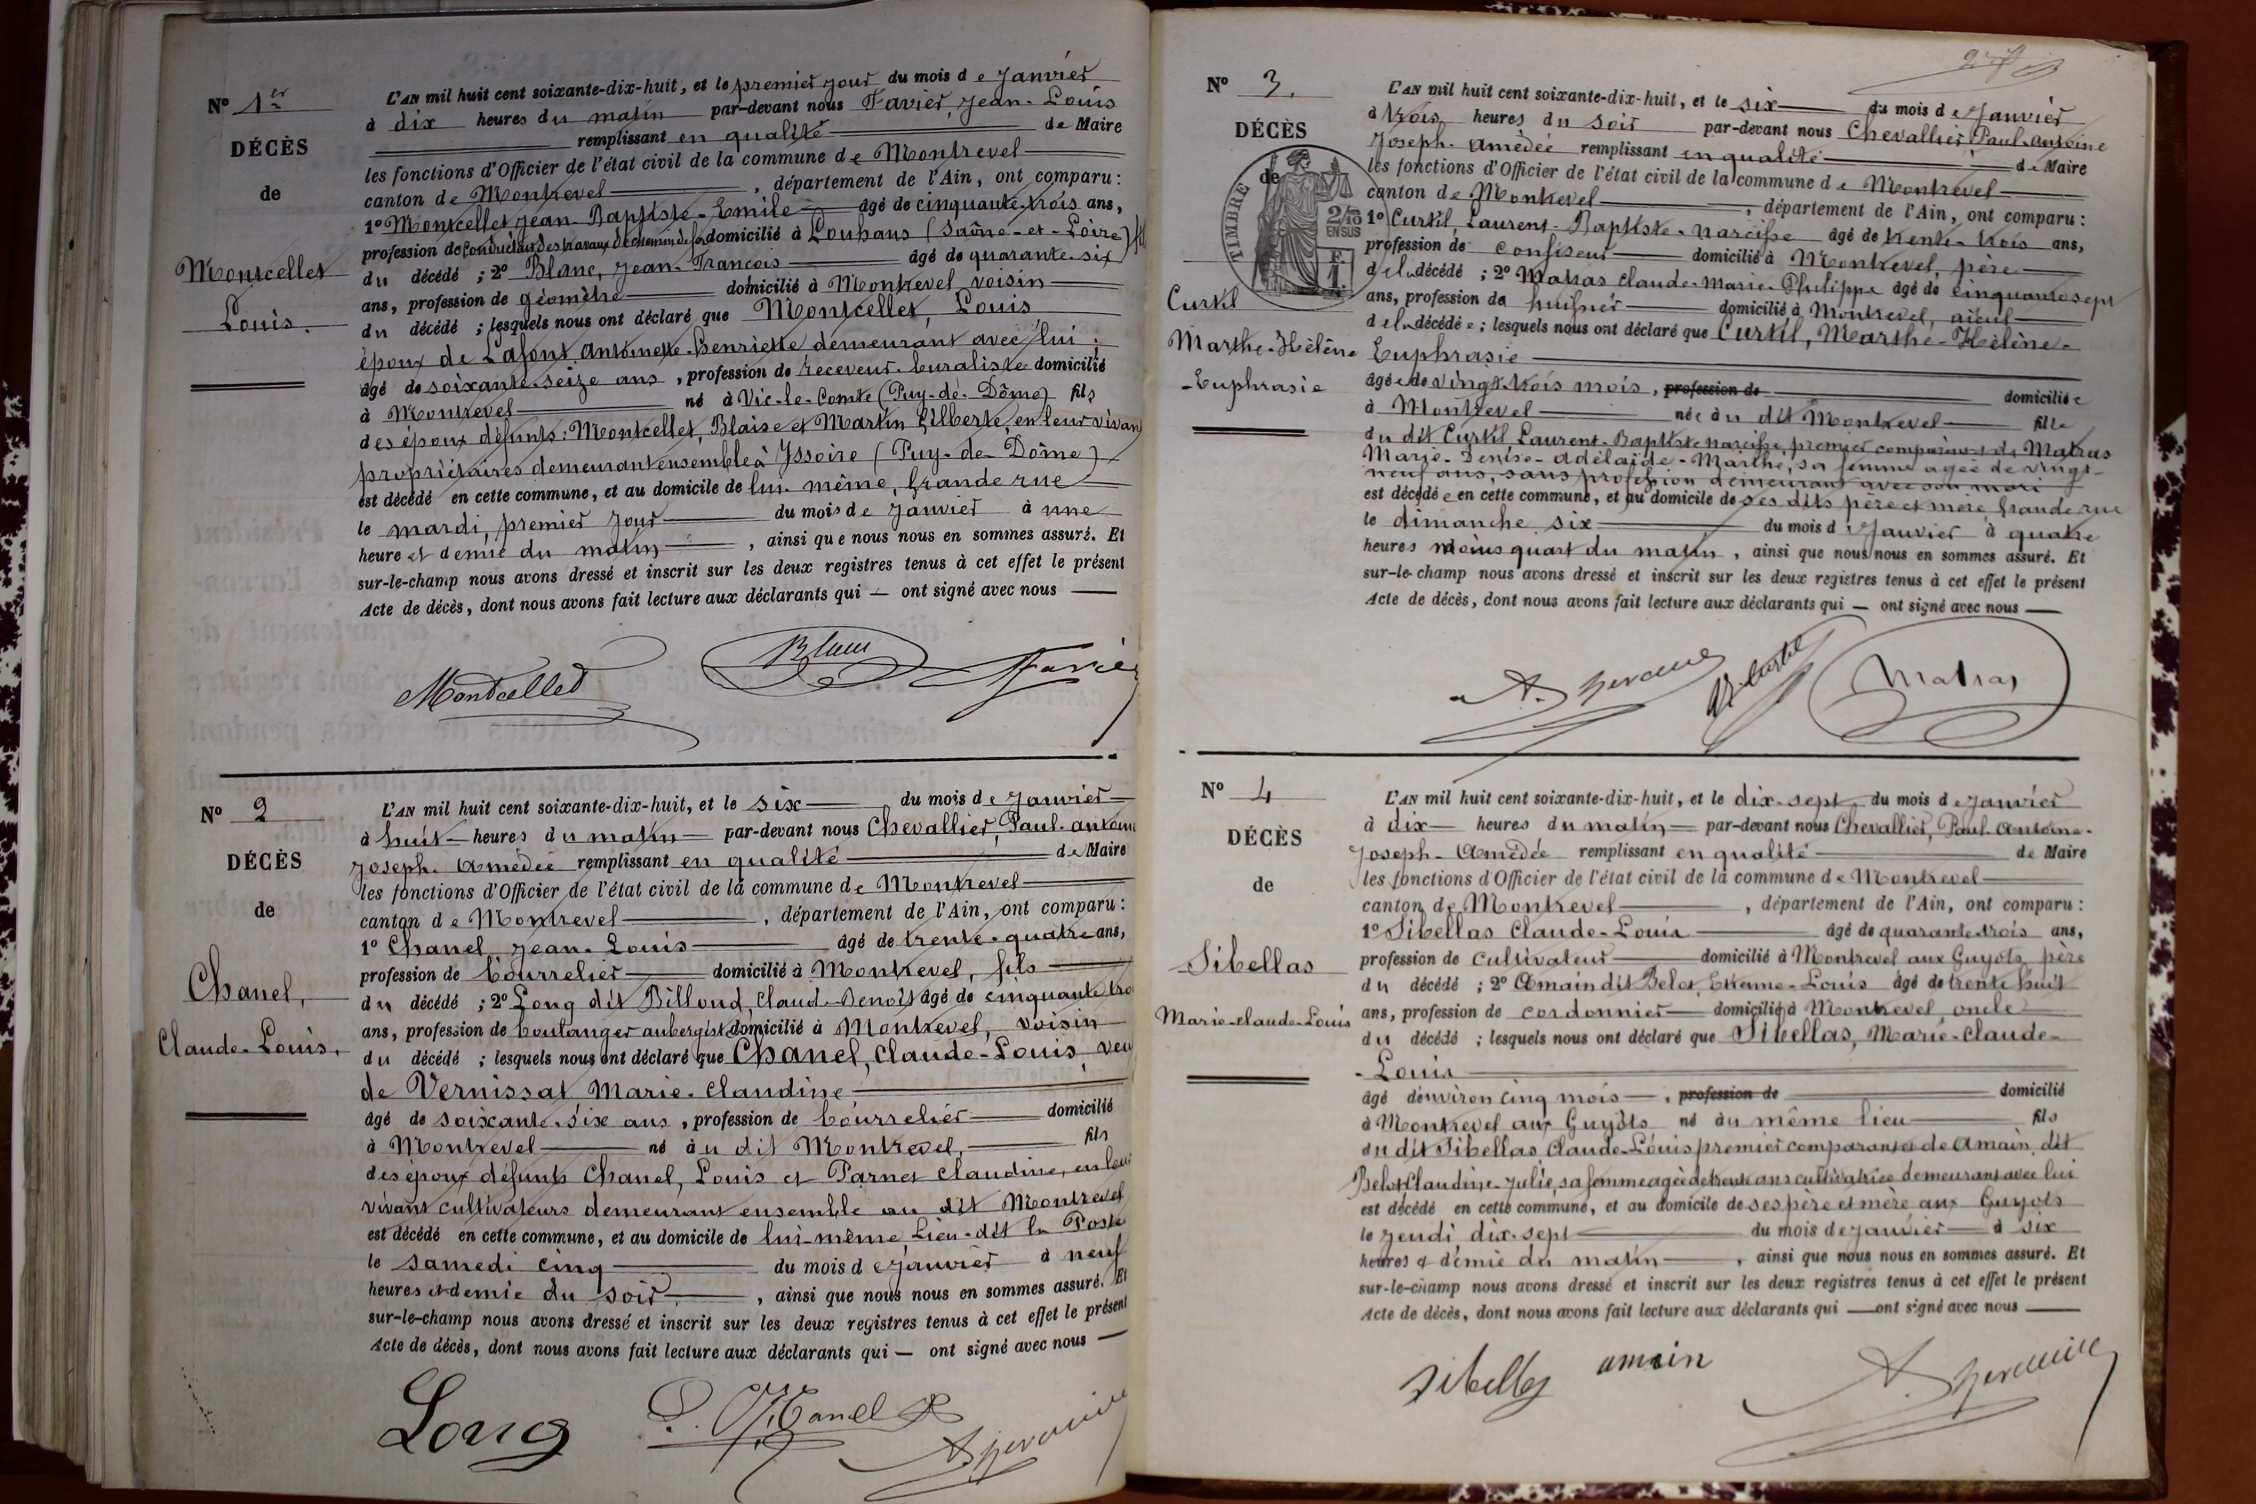 Nº 1er
DÉCÈS
de
Montcellet
Louis.
L'AN mil huit cent soixante-dix-huit, et le premier jour du mois de Janvier
à dix heures du matin par-devant nous Favier, Jean-Louis
remplissant en qualité de Maire
les fonctions d'Officier de l'état civil de la commune de Montrevel
canton de Montrevel, département de l'Ain, ont comparu :
1º Montcellet Jean-Baptiste-Emile âgé de cinquante-trois ans,
profession de conducteur des travaux de chemin de fer domicilié à Louhans (Saône-et-Loire) fils
du décédé ; 2º Blanc, Jean-François âgé de quarante-six
ans, profession de géomètre domicilié à Montrevel voisin
du décédé ; lesquels nous ont déclaré que Montcellet, Louis
époux de Lafont Antoinette-Henriette demeurant avec lui ;
âgé de soixante-seize ans, profession de receveur-buraliste domicilié
à Montrevel né à Vic-le-Comte (Puy-de-Dôme) fils
des époux défunts : Montcellet, Blaise et Martin Gilberte, en leur vivant
propriétaires demeurant ensemble à Yssoire (Puy-de-Dôme)
est décédé en cette commune, et au domicile de lui-même, Grande rue
le mardi, premier jour du mois de Janvier à une
heure et demie du matin, ainsi que nous nous en sommes assuré. Et
sur-le-champ nous avons dressé et inscrit sur les deux registres tenus à cet effet le présent
Acte de décès, dont nous avons fait lecture aux déclarants qui — ont signé avec nous
Montcellet Blanc Favier
Nº 2
DÉCÈS
de
Chanel,
Claude-Louis.
L'AN mil huit cent soixante-dix-huit, et le six du mois de Janvier
à huit heures du matin par-devant nous Chevallier, Paul-Antoine
Joseph-Amédée remplissant en qualité de Maire
les fonctions d'Officier de l'état civil de la commune de Montrevel
canton de Montrevel, département de l'Ain, ont comparu :
1º Chanel, Jean-Louis âgé de trente-quatre ans,
profession de bourrelier domicilié à Montrevel, fils
du décédé ; 2º Long dit Billoud, Claude-Benoît âgé de cinquante-tro
ans, profession de boulanger aubergiste domicilié à Montrevel, voisin
du décédé ; lesquels nous ont déclaré que Chanel, Claude-Louis, veu
de Vernissat Marie-Claudine
âgé de soixante-six ans, profession de bourrelier domicilié
à Montrevel né au dit Montrevel, fils
des époux défunts Chanel, Louis et Parnet Claudine, en leur
vivant cultivateurs demeurant ensemble au dit Montrevel
est décédé en cette commune, et au domicile de lui-même Lieu-dit la Poste
le samedi cinq du mois de Janvier à neuf
heures et demie du soir, ainsi que nous nous en sommes assuré. Et
sur-le-champ nous avons dressé et inscrit sur les deux registres tenus à cet effet le présent
Acte de décès, dont nous avons fait lecture aux déclarants qui — ont signé avec nous —
Long Chanel
Nº 3.
DÉCÈS
de
TIMBRE
2/10 EN SUS
Curtil
Marthe-Hélène
-Euphrasie
L'AN mil huit cent soixante-dix-huit, et le six du mois de Janvier
à trois heures du soir par-devant nous Chevallier Paul-Antoine
Joseph-Amédée remplissant en qualité de Maire
les fonctions d'Officier de l'état civil de la commune de Montrevel
canton de Montrevel, département de l'Ain, ont comparu :
1º Curtil, Laurent-Baptiste-Narcisse âgé de trente-trois ans,
profession de confiseur domicilié à Montrevel, père
de la décédée ; 2º Matras Claude-Marie-Philippe âgé de cinquante-sept
ans, profession de huissier domicilié à Montrevel, aïeul
de la décédée ; lesquels nous ont déclaré que Curtil, Marthe-Hélène-
Euphrasie
âgée de vingt-trois mois, profession de domiciliée
à Montrevel née au dit Montrevel fille
du dit Curtil Laurent-Baptiste Narcisse, premier comparant et de Matras
Marie-Denise-Adélaïde-Marthe, sa femme âgée de vingt-
neuf ans, sans profession demeurant avec son mari
est décédée en cette commune, et au domicile de ses dits père et mère Grande rue
le dimanche six du mois de Janvier à quatre
heures moins quart du matin, ainsi que nous nous en sommes assuré. Et
sur-le-champ nous avons dressé et inscrit sur les deux registres tenus à cet effet le présent
Acte de décès, dont nous avons fait lecture aux déclarants qui — ont signé avec nous —
Curtil Matras
Nº 4
DÉCÈS
de
Sibellas
Marie-Claude-Louis
L'AN mil huit cent soixante-dix-huit, et le dix-sept du mois de Janvier
à dix heures du matin par-devant nous Chevallier, Paul-Antoine-
Joseph-Amédée remplissant en qualité de Maire
les fonctions d'Officier de l'état civil de la commune de Montrevel
canton de Montrevel, département de l'Ain, ont comparu :
1º Sibellas Claude-Louis âgé de quarante-trois ans,
profession de cultivateur domicilié à Montrevel aux Guyots, père
du décédé ; 2º Amain dit Belot, Etienne-Louis âgé de trente huit
ans, profession de cordonnier domicilié à Montrevel, oncle
du décédé ; lesquels nous ont déclaré que Sibellas, Marie-Claude-
-Louis
âgé d'environ cinq mois, profession de domicilié
à Montrevel aux Guyots né au même lieu fils
du dit Sibellas, Claude-Louis premier comparant et de Amain dit
Belot Claudine-Julie, sa femme agée de trente ans cultivatrice demeurant avec lui
est décédé en cette commune, et au domicile de ses père et mère aux Guyots
le jeudi dix-sept du mois de Janvier à six
heures et demie du matin, ainsi que nous nous en sommes assuré. Et
sur-le-champ nous avons dressé et inscrit sur les deux registres tenus à cet effet le présent
Acte de décès, dont nous avons fait lecture aux déclarants qui — ont signé avec nous —
Sibellas amain